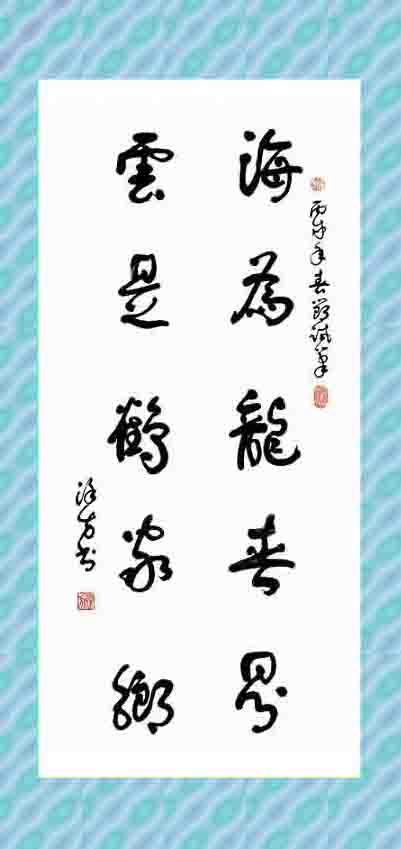 丙午年春節試筆
海為龍世界
雲是鶴家鄉
方书